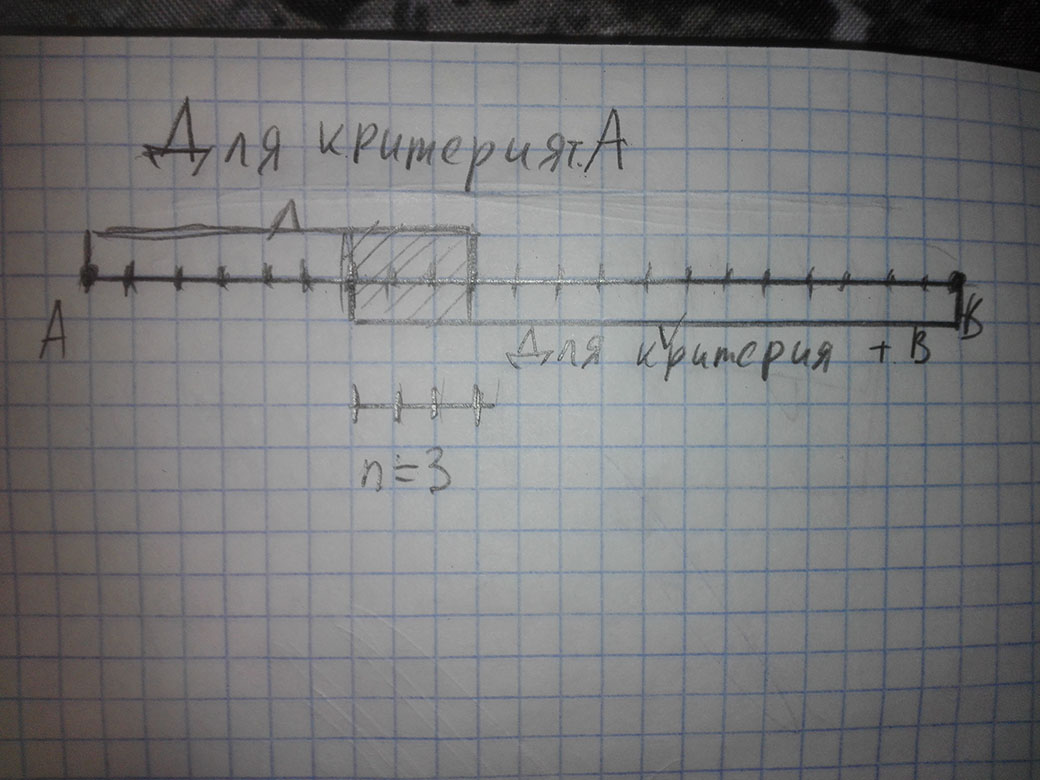 Для критерия т.А
А
В
Для критерия т В
n=3